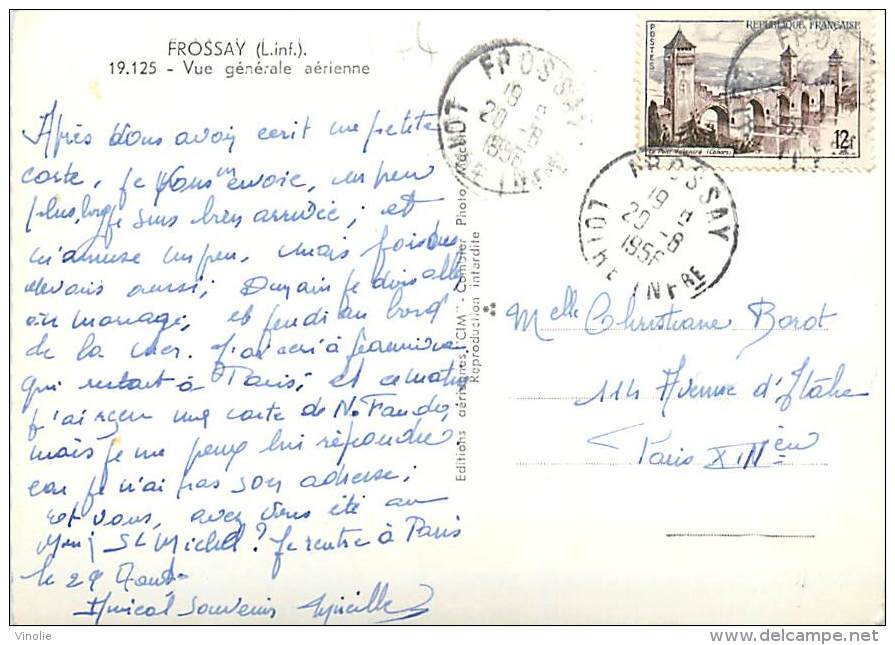 FROSSAY (L.inf.).
19.125 - Vue générale aérienne
Après vous avoir écrit une petite
carte, je vous envoie, un peu
plus long je suis bien arrivée ; et
m'amuse un peu, mais fois des
devoirs aussi ; Demain je dois aller
en mariage, et jeudi au bord
de la mer. J'ai écri à
qui restait à Paris ; et ce matin
j'ai reçu une carte de N.
mais je ne peux lui répondre
car je n'ai pas son adresse ;
et vous, avez vous été au
Mont St Michel ? Je rentre à Paris
le 29 Août
Amical souvenir Mireille
Editions aériennes "CIM" - Combier Photo Macon
Reproduction interdite
FROSSAY
19 H
20 - 8
1956
LOIRE INFRE
FROSSAY
19 H
20 - 8
1956
LOIRE INFRE
REPUBLIQUE FRANÇAISE
POSTES
Le Pont Valentré (Cahors)
12F
Melle Christiane Borot
114 Avenue d'Italie
Paris XIIIème
Vinolie
www.delcampe.net